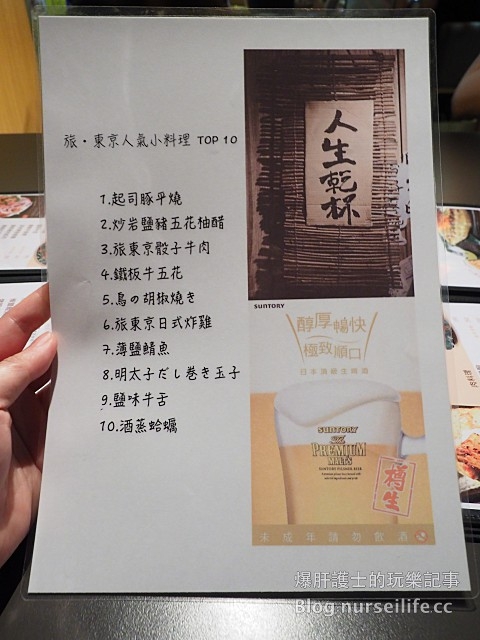 旅・東京人氣小料理 TOP 10
1.起司豚平燒
2.炒岩鹽豬五花柚醋
3.旅東京骰子牛肉
4.鐵板牛五花
5.鳥の胡椒燒き
6.旅東京日式炸雞
7.薄鹽鯖魚
8.明太子だし巻き玉子
9.鹽味牛舌
10.酒蒸蛤蠣
人生乾杯
SUNTORY
醇厚暢快
極致順口
日本頂級生啤酒
SUNTORY
THE
PREMIUM
MALT'S
樽生
未成年請勿飲酒
爆肝護士的玩樂記事
Blog.nurseilife.cc